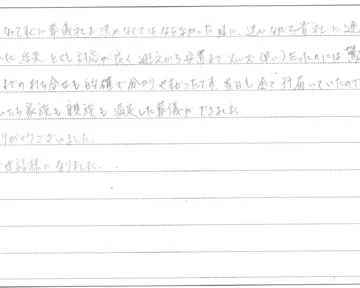 なくてすぐに葬儀社を決めなくてはならなかった時に、迷いながら貴社に連
いた結果、とても対応が良く迎えから安置までスムーズ(早い)だったのには驚
までの打ち合せも的確で分かりやすかったです。当日も全て行届いていたので
いたち家族も親族も満足した葬儀ができました
りがとうございました。
世話様になりました。